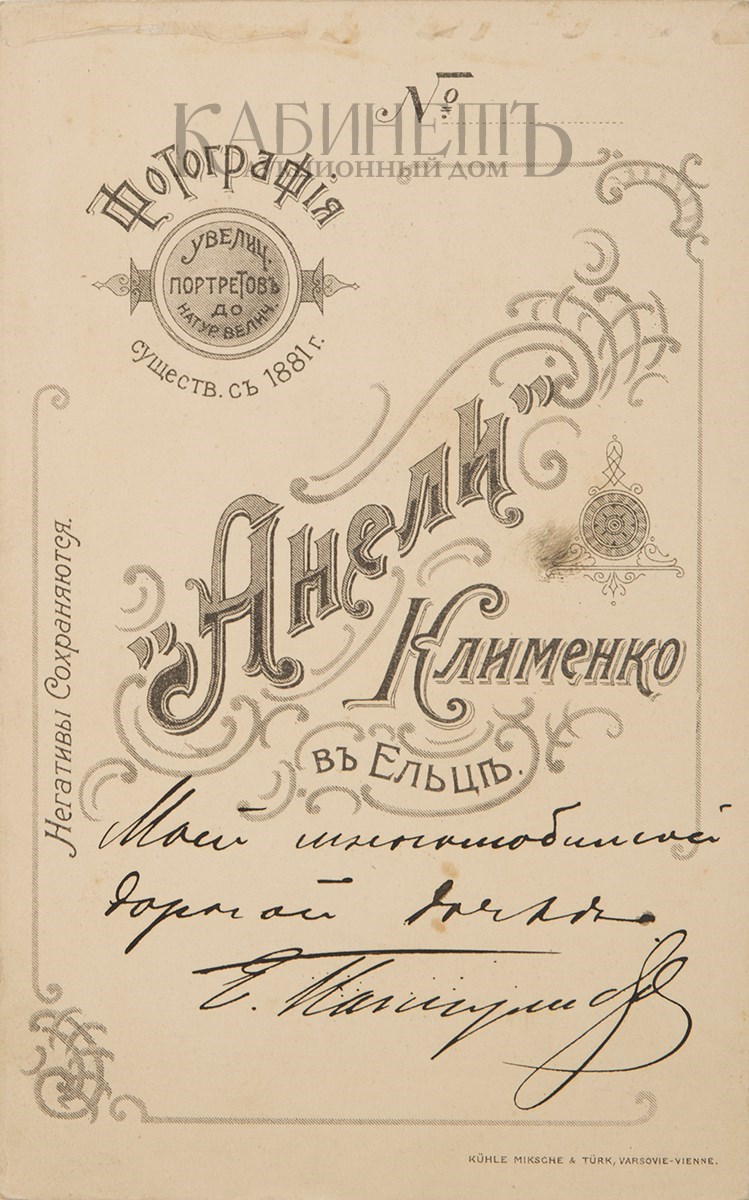 №
КАБИНЕТЪ
АУКЦИОННЫЙ ДОМ
Фотографія
УВЕЛИЧ.
ПОРТРЕТОВЪ
ДО
НАТУР. ВЕЛИЧ.
существ. съ 1881 г.
„Анели”
Клименко
въ Ельцѣ.
Негативы Сохраняются.
Моей многолюбимой
дорогой
Е.
KÜHLE MIKSCHE & TÜRK, VARSOVIE-VIENNE.